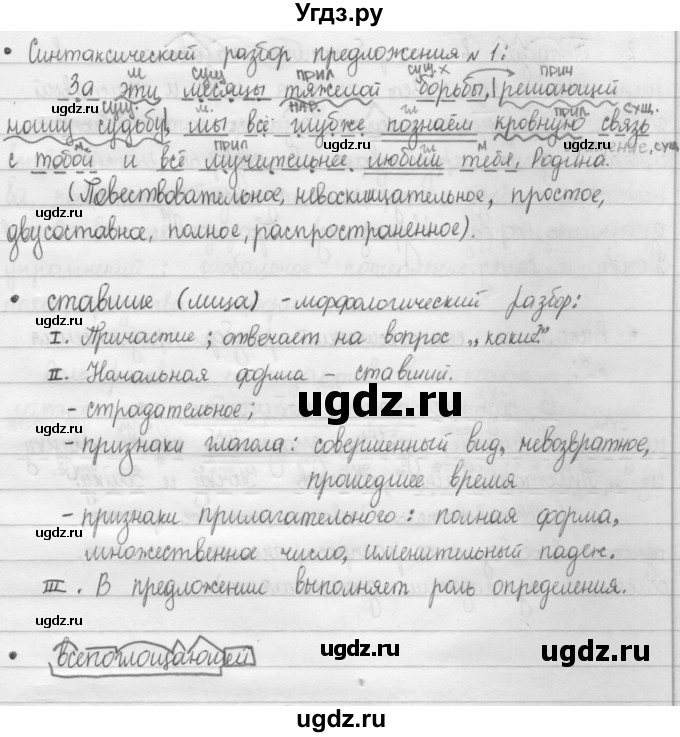 Угдз.ру
• Синтаксический разбор предложения №1:
м сущ прил сущ. х прич
За эти месяцы тяжелой борьбы, решающей
сущ. м. нар. гл прил сущ.
нашу судьбу, мы всё глубже познаём кровную связь
м прил гл м ение, сущ
с тобой и всё мучительнее любим тебя, Родина.
(Повествовательное, невосклицательное, простое,
двусоставное, полное, распространенное).
• ставшие (лица) - морфологический разбор:
I. Причастие; отвечает на вопрос „какие?"
II. Начальная форма - ставший.
- страдательное;
- признаки глагола: совершенный вид, невозвратное,
прошедшее время
- признаки прилагательного: полная форма,
множественное число, именительный падеж.
III. В предложении выполняет роль определения.
• всепоглощающей
ugdz.ru
ugdz.ru
ugdz.ru
ugdz.ru
ugdz.ru
ugdz.ru
ugdz.ru
ugdz.ru
ugdz.ru
ugdz.ru
ugdz.ru
ugdz.ru
ugdz.ru
ugdz.ru